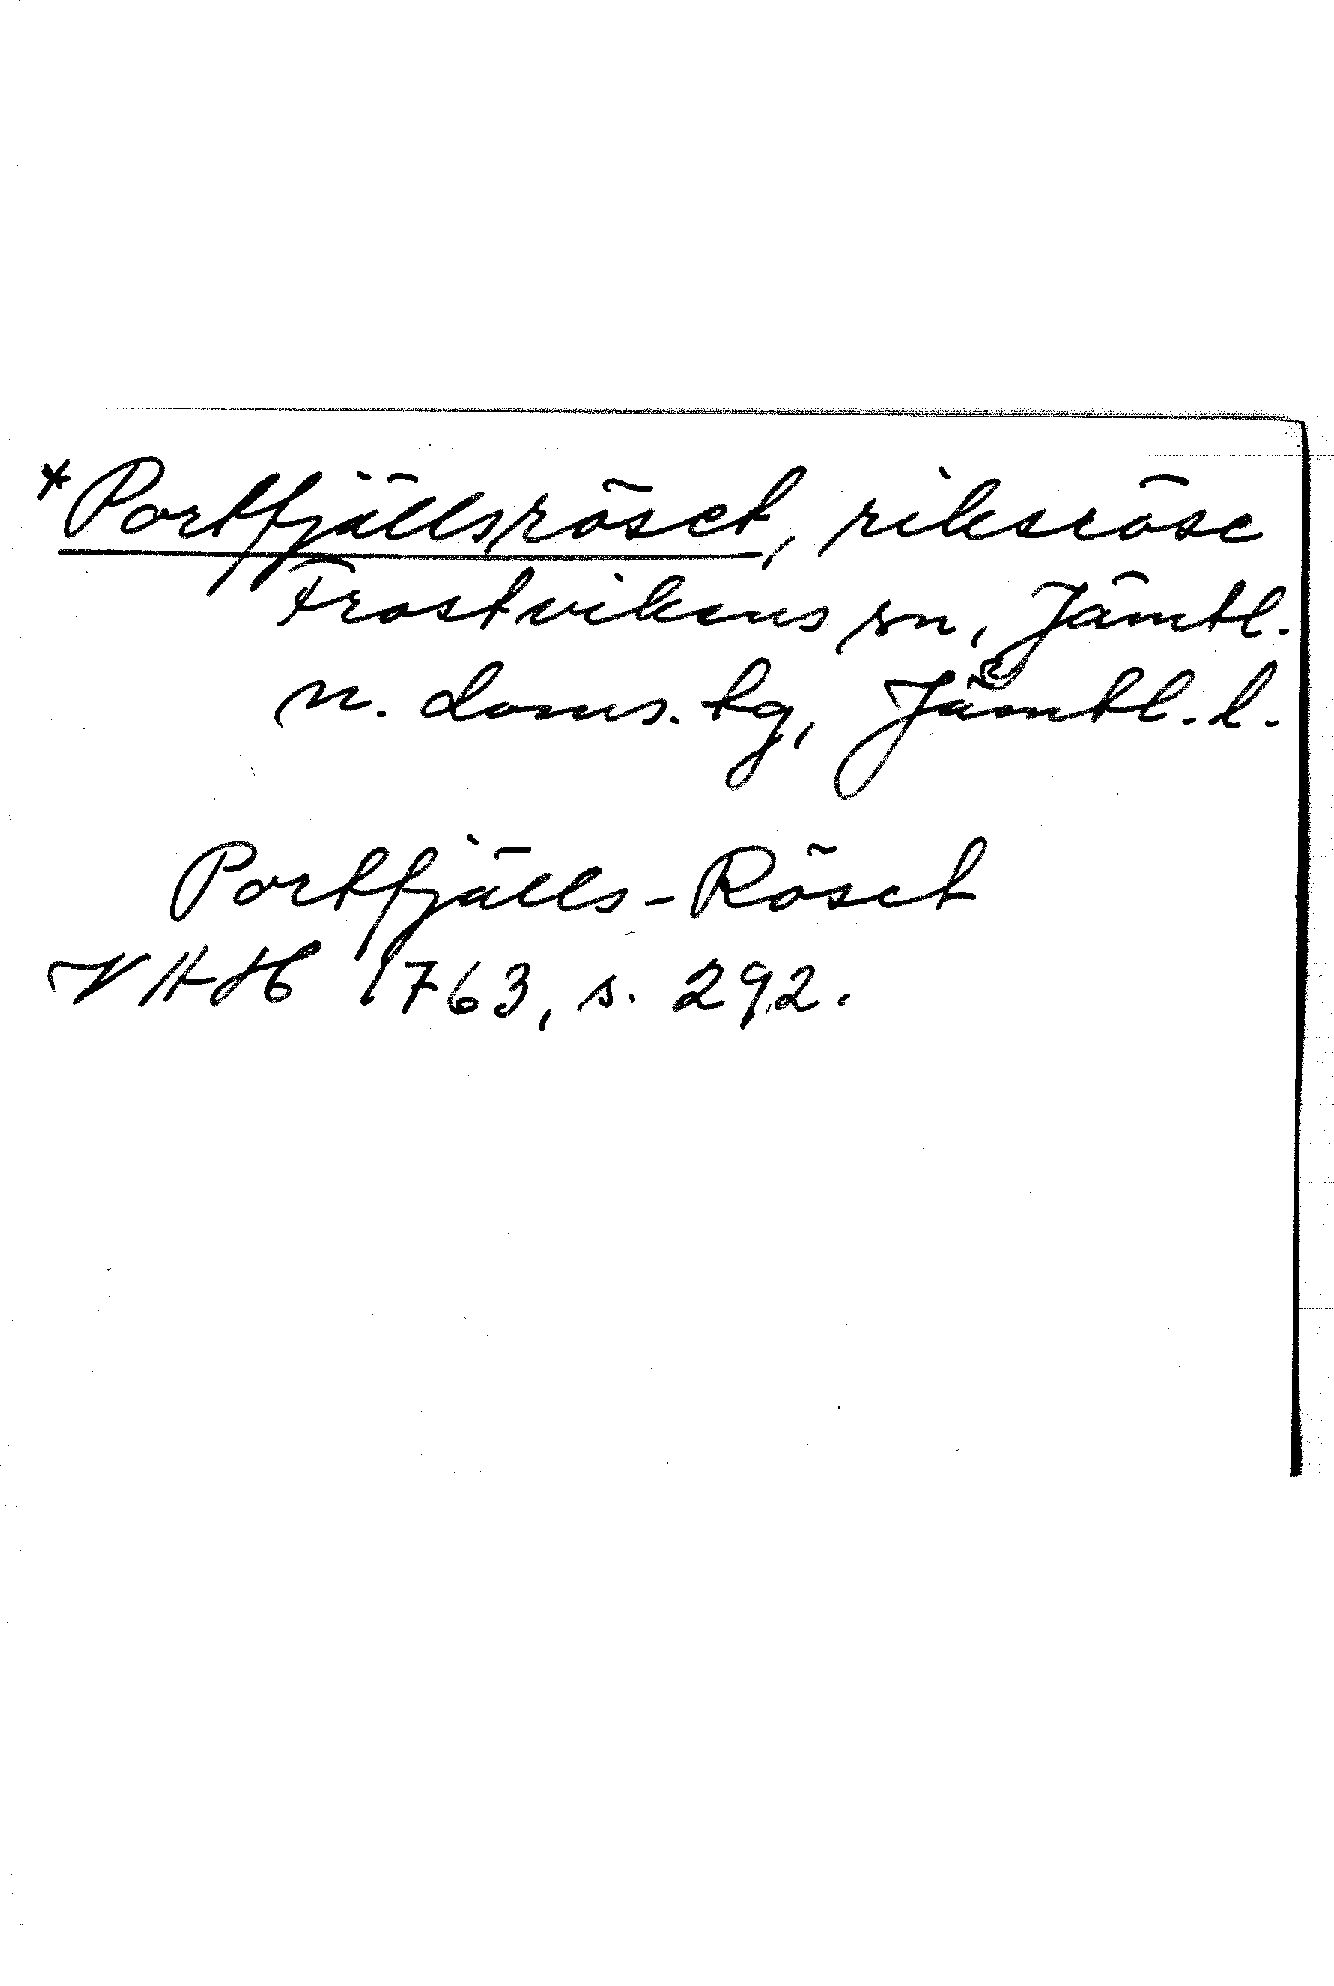 *Portfjällsröset, riksröse
Frostvikens sn, Jämtl.
n. doms. tg, Jämtl. l.
Portfjälls-Röset
VHAH 1763, s. 292.